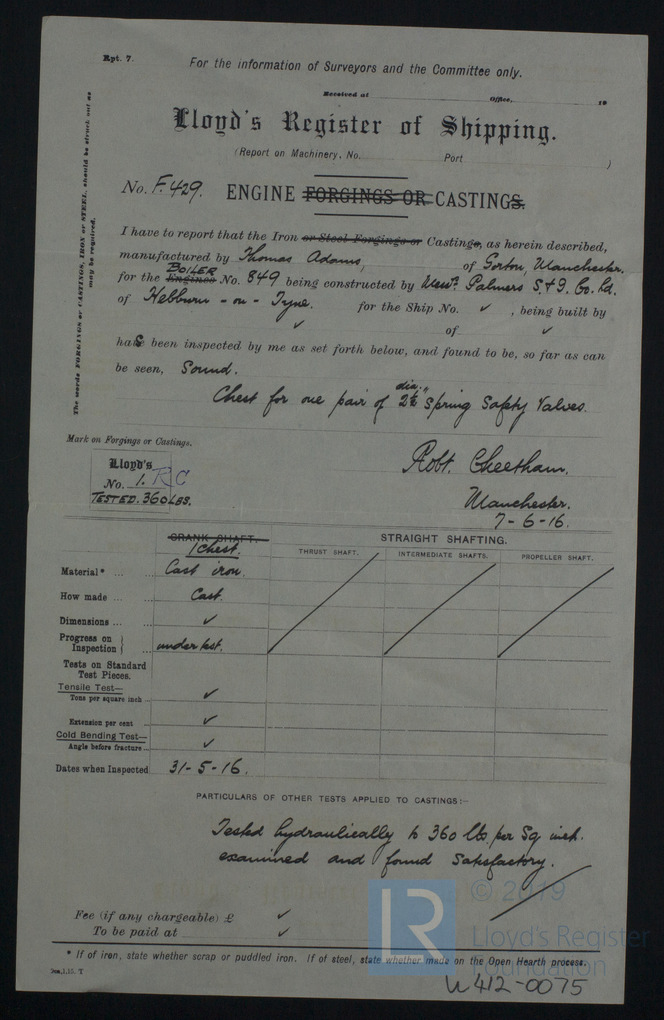 Rpt. 7.
For the information of Surveyors and the Committee only.
Received at Office, 19
Lloyd's Register of Shipping.
(Report on Machinery, No. Port )
No. F.429. ENGINE FORGINGS OR CASTINGS.
I have to report that the Iron or Steel Forgings or Castings, as herein described,
manufactured by Thomas Adams, of Gorton, Manchester.
BOILER
for the Engines No. 849 being constructed by Messrs. Palmers S. & I. Co. Ld.
of Hebburn - on - Tyne. for the Ship No. ✓ , being built by
✓ of ✓
has been inspected by me as set forth below, and found to be, so far as can
be seen, Sound.
dia.
Chest for one pair of 2½" Spring Safety Valves.
The words FORGINGS or CASTINGS, IRON or STEEL, should be struck out as
may be required.
Mark on Forgings or Castings.
Lloyd's
No. 1. RC
TESTED. 360 LBS.
Robt. Cheetham.
Manchester.
7-6-16.
CRANK SHAFT.
1 Chest.
STRAIGHT SHAFTING.
THRUST SHAFT. INTERMEDIATE SHAFTS. PROPELLER SHAFT.
Material* ... Cast iron.
How made ... Cast.
Dimensions ... ✓
Progress on
Inspection } ... under test.
Tests on Standard
Test Pieces.
Tensile Test—
Tons per square inch ... ✓
Extension per cent ✓
Cold Bending Test—
Angle before fracture ... ✓
Dates when Inspected 31-5-16.
PARTICULARS OF OTHER TESTS APPLIED TO CASTINGS:—
Tested hydraulically to 360 lbs. per Sq inch.
examined and found Satisfactory.
Fee (if any chargeable) £ ✓
To be paid at ✓
© 2019
LR
Lloyd's Register
Foundation
* If of iron, state whether scrap or puddled iron. If of steel, state whether made on the Open Hearth process.
W412-0075